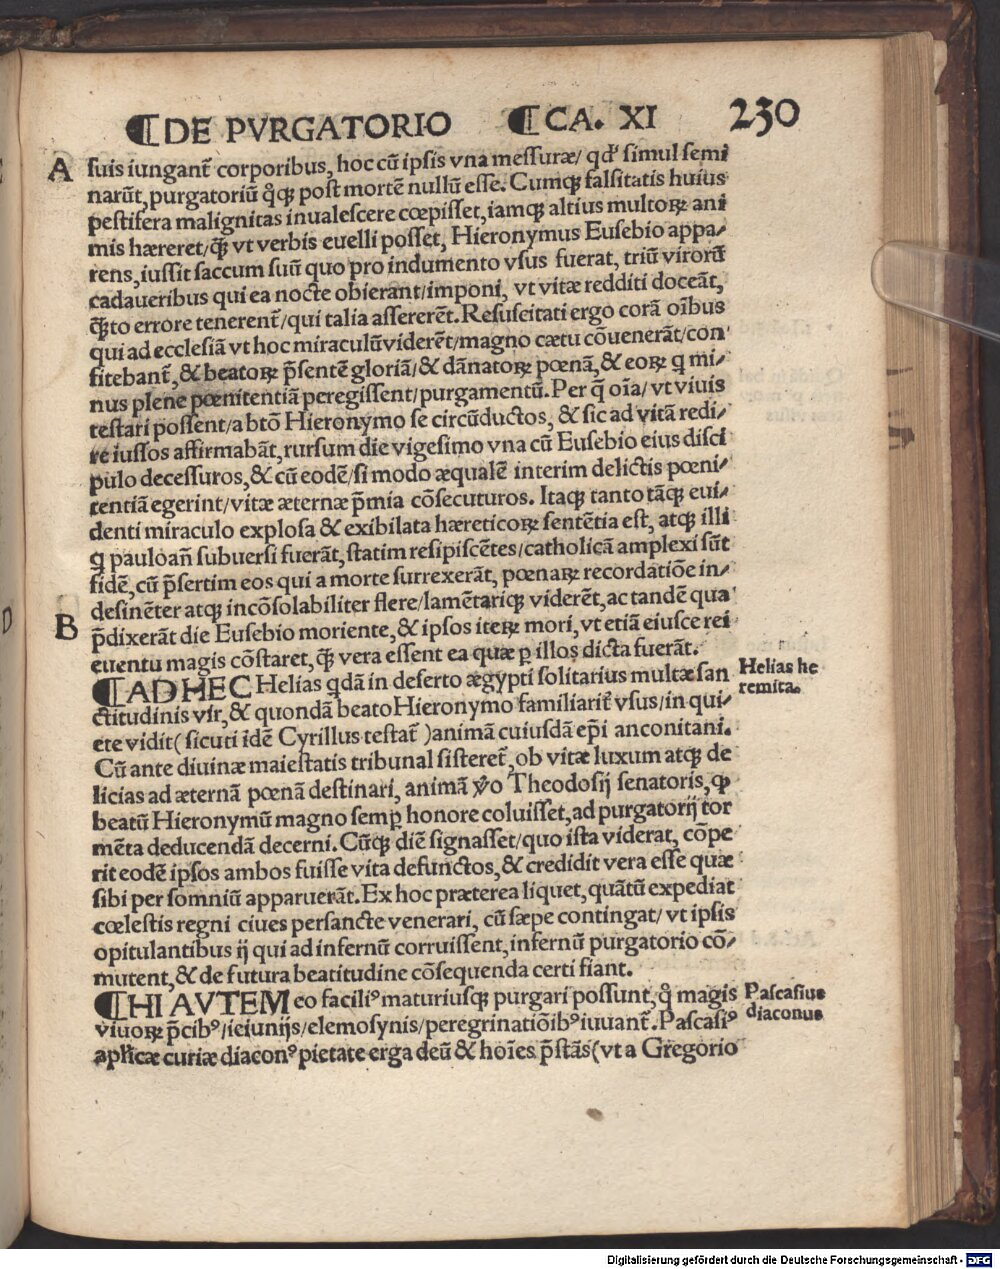 ¶DE PVRGATORIO ¶CA. XI 230
A suis iungant᷑ corporibus, hoc cū ipsis vna messuræ/ qd' simul semi
narūt, purgatoriū q̊qꝫ post mortē nullū esse. Cumqꝫ falsitatis huius
pestifera malignitas inualescere cœpisset, iamqꝫ altius multoꝝ ani
mis hæreret/ꝙ̄ vt verbis euelli posset, Hieronymus Eusebio appa⸗
rens, iussit saccum suū quo pro indumento vsus fuerat, triū virorū
cadaueribus qui ea nocte obierant/imponi, vt vitæ redditi doceāt,
ꝙ̄to errore tenerent᷑/qui talia assererēt. Resuscitati ergo corā oībus
qui ad ecclesiā vt hoc miraculū viderēt/magno cætu cōuenerāt/con
fitebant᷑, & beatoꝝ p̄sentē gloriā/& dānatoꝝ pœnā, & eoꝝ q mi⸗
nus plene pœnitentiā peregissent/purgamentū. Per q̄ oīa/ vt viuis
testari possent/a btō Hieronymo se circūductos, & sic ad vitā redi⸗
re iussos affirmabāt, rursum die vigesimo vna cū Eusebio eius disci
pulo decessuros, & cū eodē/si modo æqualē interim delictis pœni⸗
tentiā egerint/vitæ æternæ p̄mia cōsecuturos. Itaqꝫ tanto tāqꝫ eui⸗
denti miraculo explosa & exibilata hæreticoꝝ sentētia est, atqꝫ illi
q pauloañ subuersi fuerāt, statim resipiscētes/catholicā amplexi sūt
fidē, cū p̄sertim eos qui a morte surrexerāt, pœnaꝝ recordatiōe in⸗
desinēter atqꝫ incōsolabiliter flere/lamētariqꝫ viderēt, ac tandē qua
B p̄dixerāt die Eusebio moriente, & ipsos iteꝝ mori, vt etiā eiusce rei
euentu magis cōstaret, ꝙ̄ vera essent ea quæ ꝑ illos dicta fuerāt.
¶AD HEC Helias qdā in deserto ægypti solitarius multæ san
Helias he
remita.
ctitudinis vir, & quondā beato Hieronymo familiarit᷑ vsus/in qui⸗
ete vidit (sicuti idē Cyrillus testat᷑) animā cuiusdā ep̄i anconitani.
Cū ante diuinæ maiestatis tribunal sisteret᷑, ob vitæ luxum atqꝫ de
licias ad æternā pœnā destinari, animā ꝟo Theodosij senatoris, ꝙ
beatū Hieronymū magno semꝑ honore coluisset, ad purgatorij tor
mēta deducendā decerni. Cūqꝫ diē signasset/quo ista viderat, cōpe
rit eodē ipsos ambos fuisse vita defunctos, & credidit vera esse quæ
sibi per somniū apparuerāt. Ex hoc præterea liquet, quātū expediat
cœlestis regni ciues persancte venerari, cū sæpe contingat/ vt ipsis
opitulantibus ij qui ad infernū corruissent, infernū purgatorio cō⸗
mutent, & de futura beatitudine cōsequenda certi fiant.
¶HI AVTEM eo facili⁹ maturiusqꝫ purgari possunt, q̊ magis
Pascasius
diaconus
viuoꝝ p̄cib⁹/ieiunijs/elemosynis/peregrinatiōib⁹ iuuant᷑. Pascasi⁹
apl̄icæ curiæ diacon⁹ pietate erga deū & hoīes p̄stās (vt a Gregorio
Digitalisierung gefördert durch die Deutsche Forschungsgemeinschaft - DFG